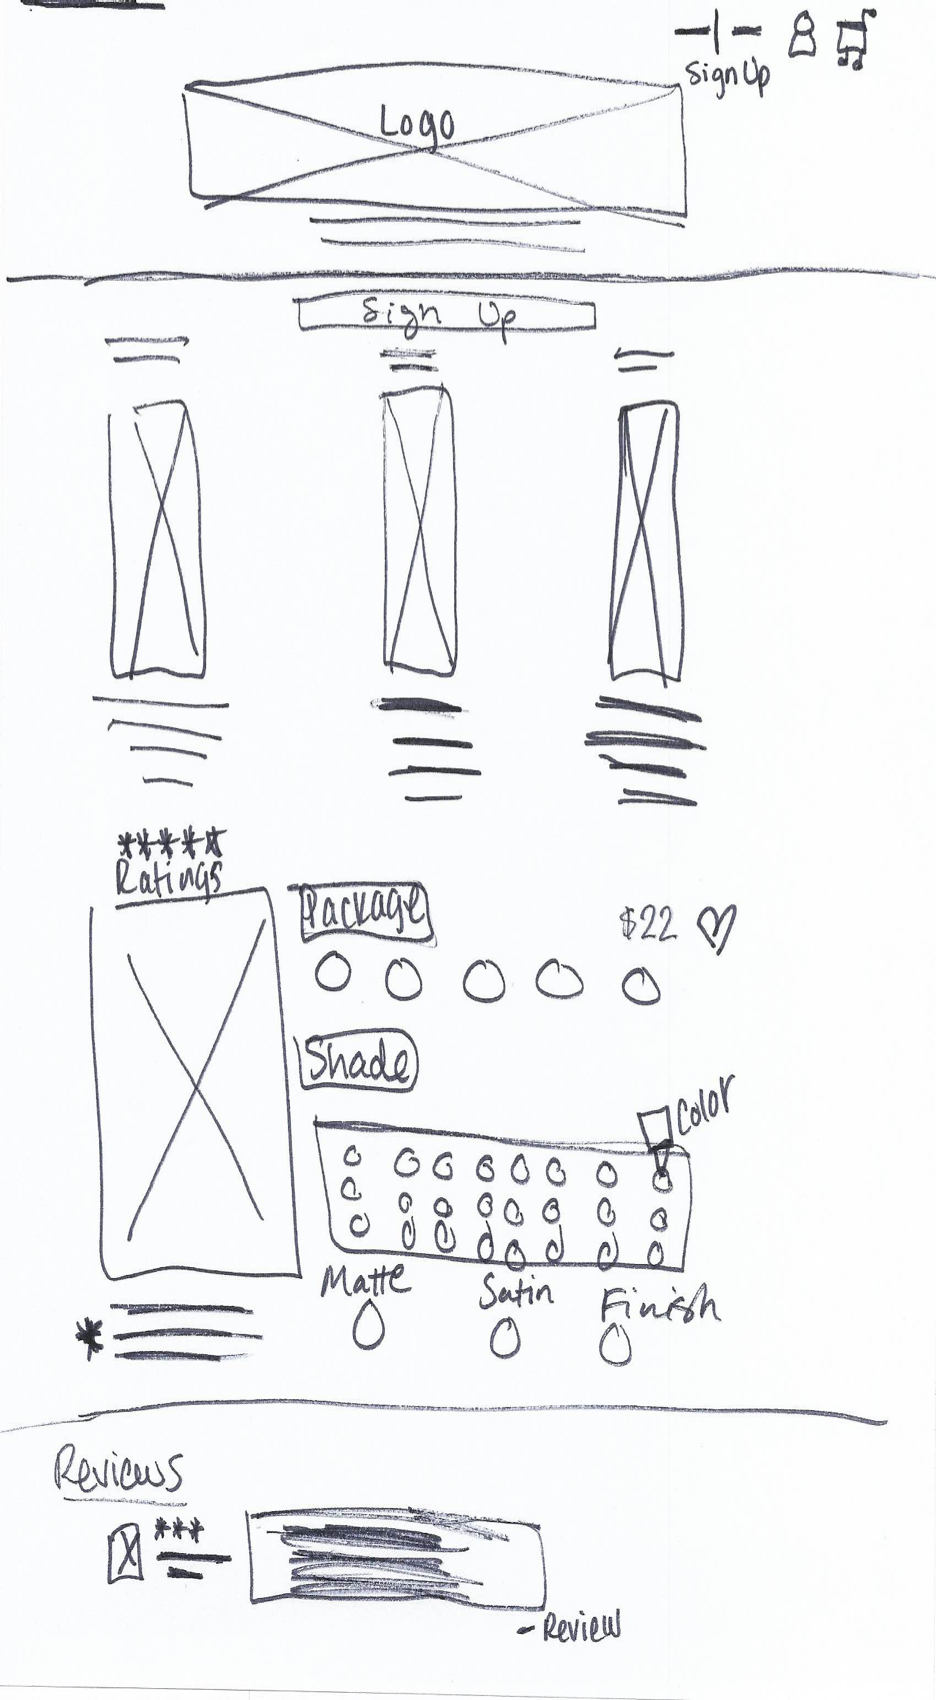 Sign Up
Logo
Sign Up
*****
Ratings
Package
$22
Shade
Color
Matte
Satin
Finish
*
Reviews
***
- Review